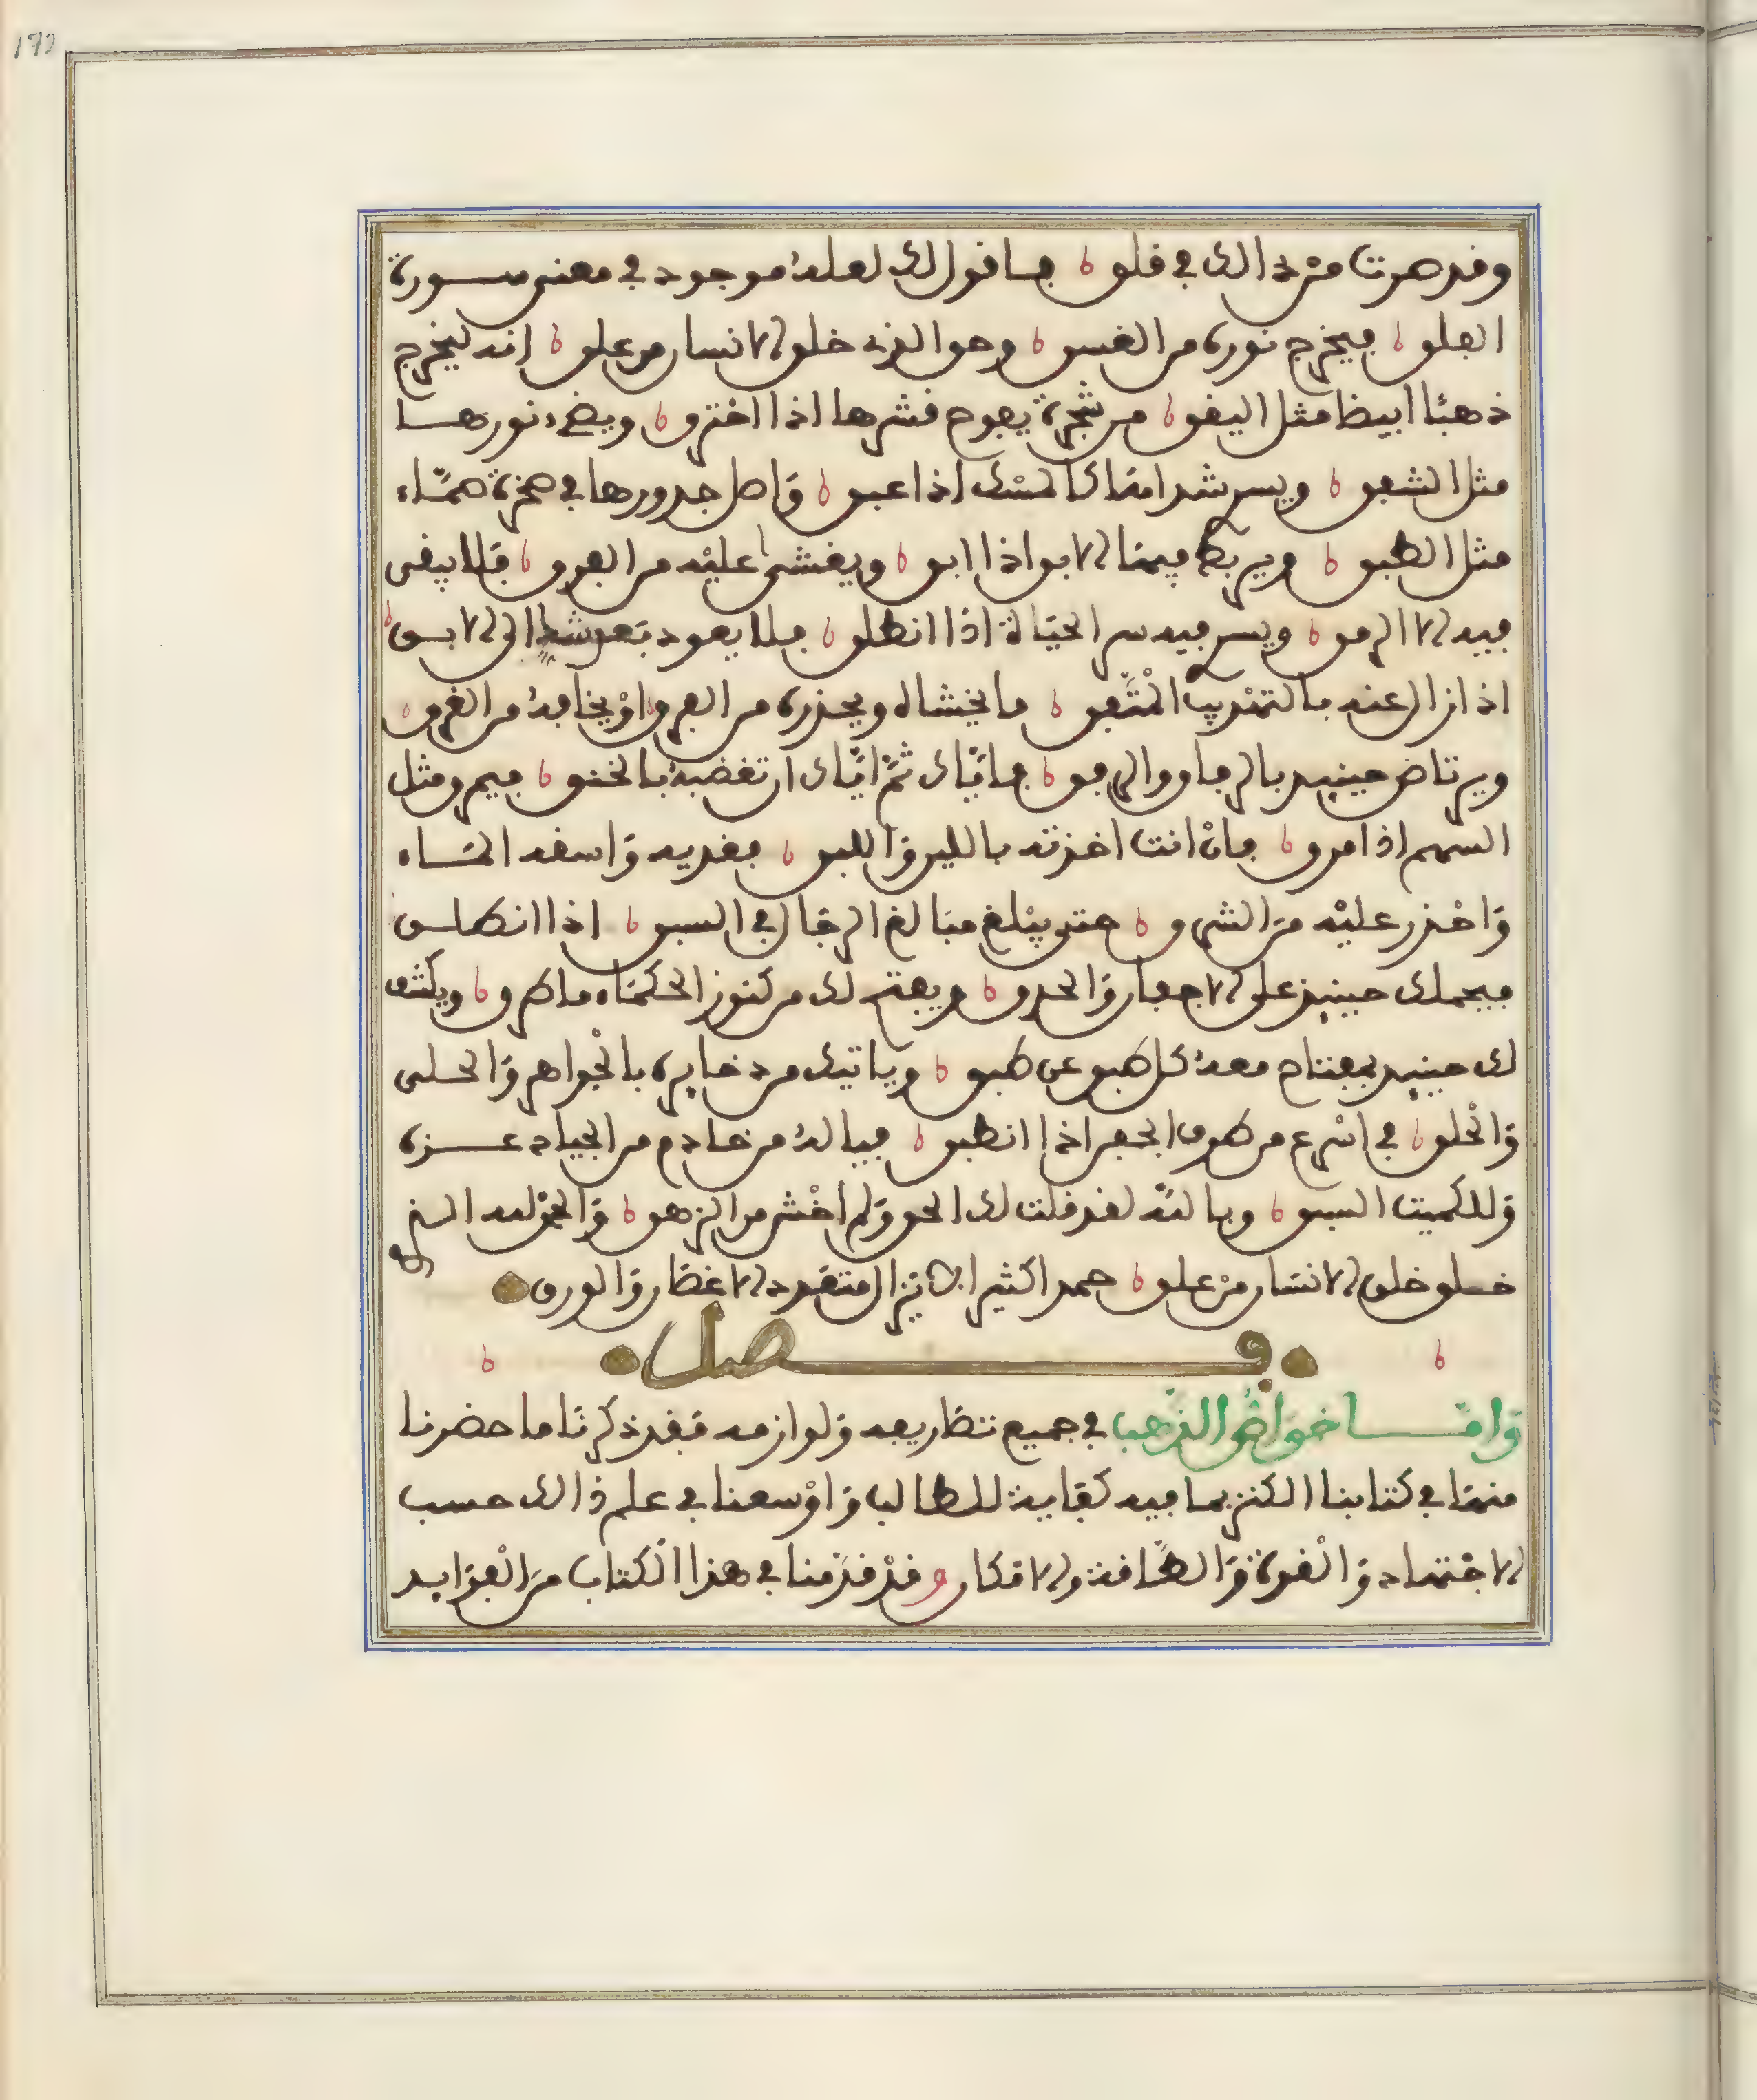 179
وقد صرت من ذالك في قلق فاقول لك لعله موجود في معنى سورة
الفلق فيخرج نوره من الغسق وهو الذي خلق الانسان من علق انه ليخرج
ذهبا ابيظا مثل اليقق من شجرة يفوح قشرها اذا احترق ويضيء نورها
مثل الشفق ويسر شدا منها كالمسك اذا عبق واصل جدورها في صخرة صماء
مثل الطبق ويربط فيها الابق اذا ابق ويغشى عليه من الفرق فلا يبقى
فيه الا الرمق ويسر فيه سر الحياة اذا انطلق فلا يعود بعد الى الابق
اذ ازال عنه بالتهذيب المتفق ما يخشاه ويحذره من الفرق او يخافه من الغرق
ويرتاض حينيد بالرفاق والرفق فاياك ثم اياك ان تغضبه بالخنق فيمرق مثل
السهم اذا مرق فان انت اخذته باللين واللبق فغديه واسقه الماء
واحذر عليه من الشرق حتى يبلغ مبالغ الرجال في السبق اذا انطلق
فيحملك حينيذ على الاجفان والحدق ويفتح لك من كنوز الحكماء ما طرق ويكشف
لك حينيد بمفتاح معه كل طبق عن طبق وياتيك من ذخايره بالجواهر والحلى
والحلق في اسرع من طرف الجفن اذا انطبق فياله من خادم من الجياد عزه
وللكميت السبق وبالله لقد قلت لك الحق ولم اخش من الزهق والحمد لله الذي
خلق خلق الانسان من علق حمدا كثيرا لا يزال متعدد الاغصان والورق
فصل
واما خواص الذهب في جميع تصاريفه ولوازمه فقد ذكرنا ما حضرنا
منها في كتابنا الكنز بما فيه كفاية للطالب واوسعنا في علم ذالك حسب
الاجتهاد والقوة والطاقة والامكان وقد قدمنا في هذا الكتاب من الفوايد